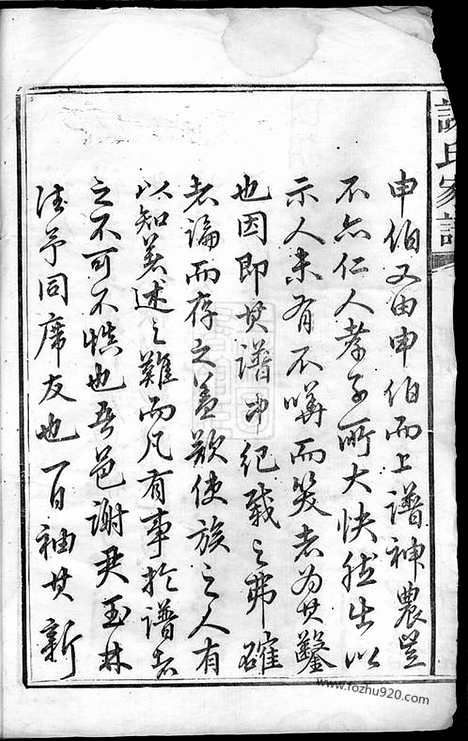 謝氏家譜
申伯又由申伯而上譜神農豈
不亦仁人孝子所大快然出以
示人未有不嘩而笑者為其鑿
也因即其譜中紀載之弗確
者論而存之蓋欲使族之人有
以知著述之難而凡有事於譜者
之不可不慎也吾邑謝尹玉林
法予同席友也一日袖其新
www.fozhu920.com